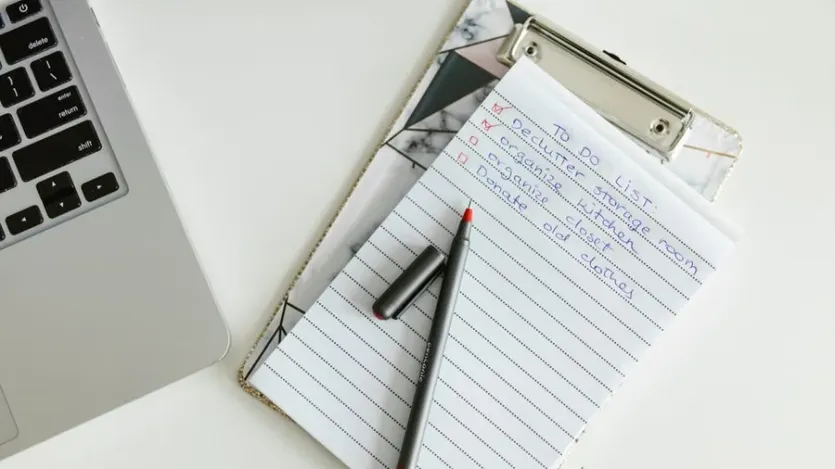 delete
enter
return
shift
TO DO LIST:
Declutter storage room
organize kitchen
organize closet
Donate old clothes